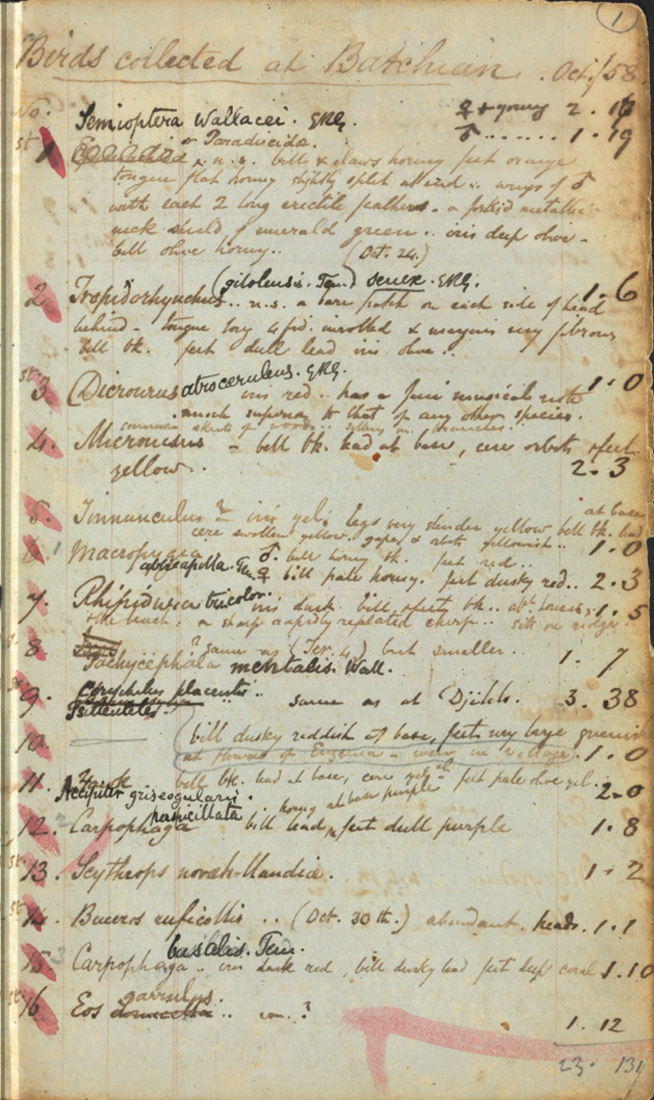 1
Birds collected at Batchian. Oct./58
No. Semioptera Wallacei. GRG. ♀ + young 2. 16
♂ ....... 1. 19
st 1 or Paradiscidæ.
n.s. bill & claws horny feet orange
tongue flat horny slightly split at end .. wings of ♂
with each 2 long erectile feathers - a forked metallic
neck shield of emerald green .. iris deep olive -
bill olive horny .. (Oct. 24.)
2 Tropidorhynchus (gilolensis. Tem.) senex. GRG. 1. 6
.. n.s. a bare patch on each side of head
behind - tongue long 4 fid. &
bill bk. feet dull lead iris olive ..
st 3. Dicrourus atrocerulens. GRG. 1. 0
iris red .. has a fine musical note
much superior to that of any other species.
common skirts of woods .. sitting on branches.
4. Micronisus - bill bk. lead at base, cere orbits & feet
yellow .. 2. 3
5. Tinnunculus ♀ iris yel; legs very slender yellow bill bk. lead at base
cere swollen yellow, gape & orbits yellowish .. 1. 0
6 Macropygia ♂. bill horny bk. feet red ..
albicapilla. Tem. ♀ bill pale horny. feet dusky red .. 2. 3
7. Rhipidura tricolor. iris dark bill & feet bk .. 1. 5
the beach; a sharp rapidly repeated chirp .. sits on ridges
8 ? same as (Ter. 4) but smaller ..
Pachycephala mentalis Wall. 1. 7
9 Coryphilus placentis .. same as at Djilolo. 3. 38
10. bill dusky reddish at base, feet very large
at flowers of Eugenia - in village. 1. 0
11. Hawk bill bk. lead at base, cere yel. feet pale olive yel. 2-0
Accipiter griseogularis
12. Carpophaga perspicillata bill lead, horny at base purple feet dull purple 1. 8
st 13. Scythrops novæhollandiæ. 1. 2
st 14. Buceros ruficollis .. (Oct. 30th.) abundant. heads. 1. 1
15 Carpophaga basalis. Tem. .. iris dark red, bill dusky lead feet deep coral 1. 10
st 16. Eos garrulus. domicella .. var. ?
1. 12
23. 139